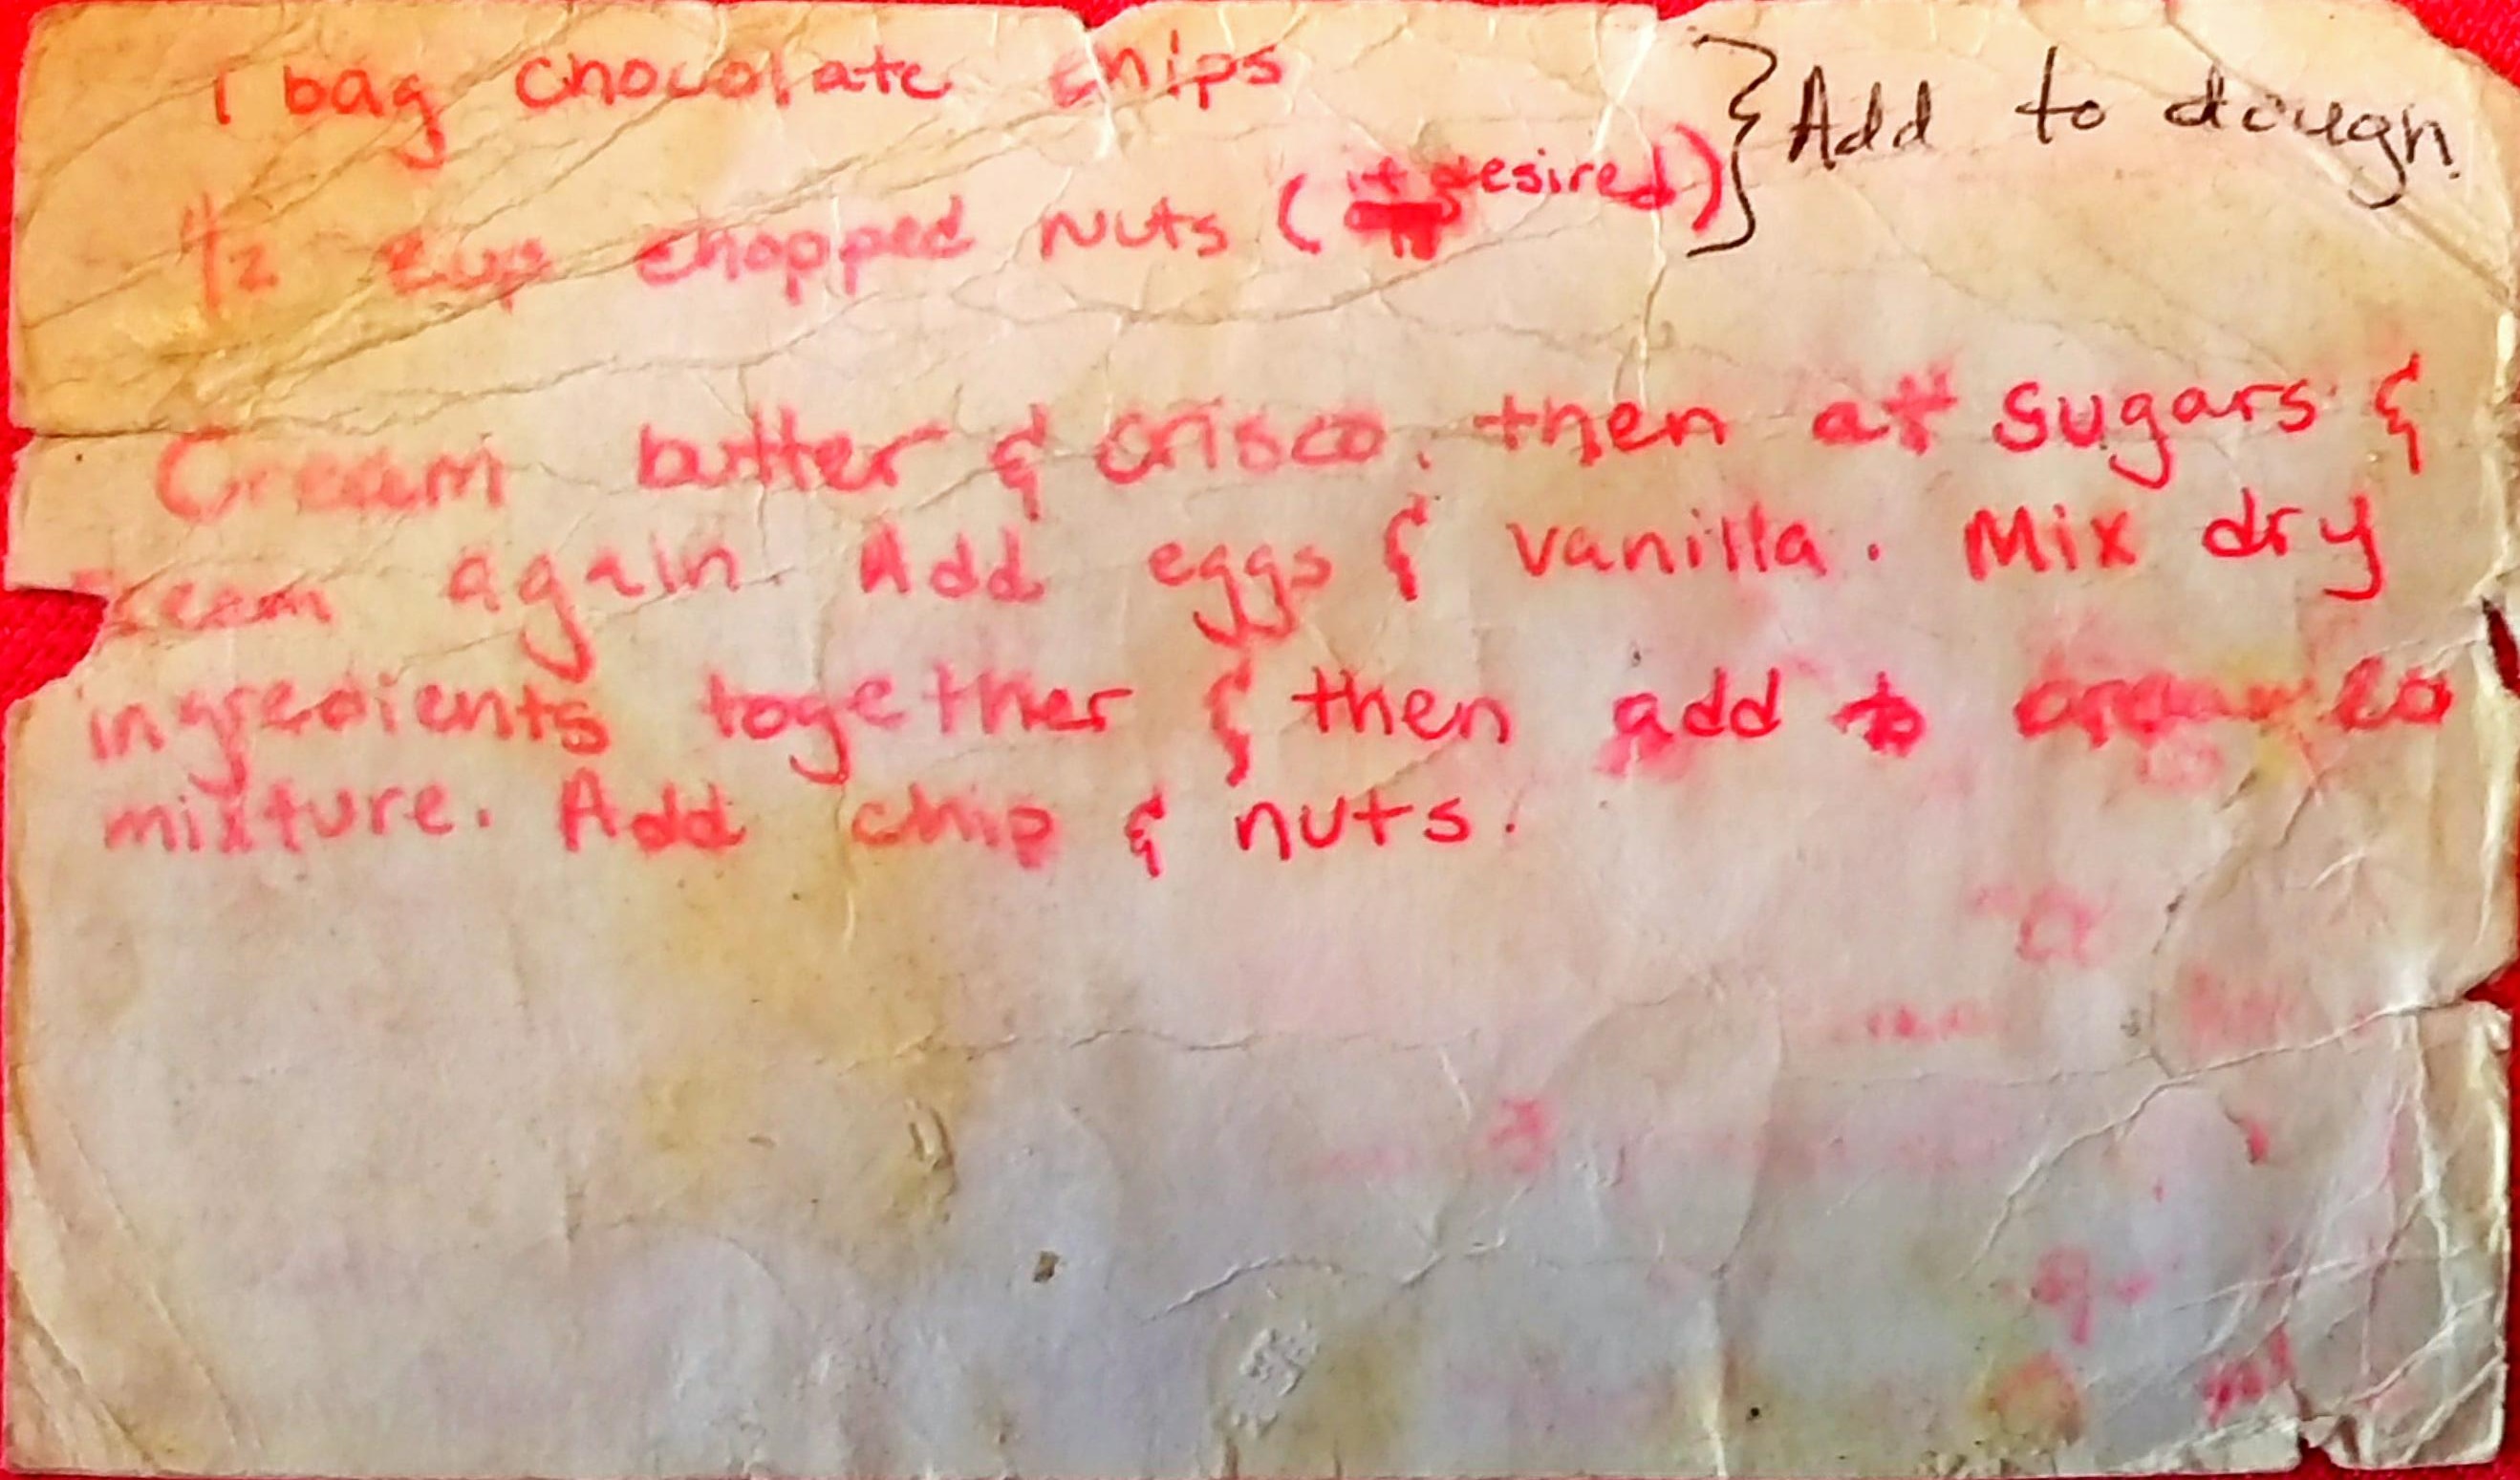 1 bag chocolate chips } Add to dough
1/2 cup chopped nuts (if desired)
Cream butter & crisco, then at sugars &
cream again. Add eggs & vanilla. Mix dry
ingredients together & then add to creamed
mixture. Add chip & nuts.